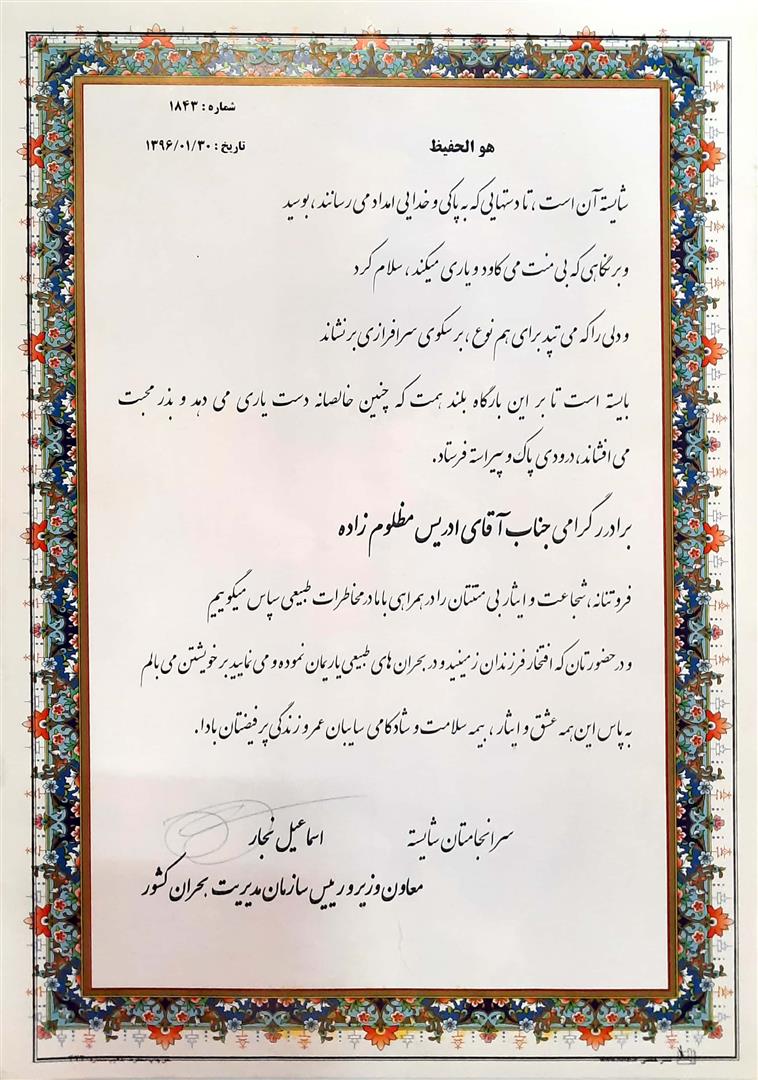 شماره : ۱۸۴۳
هو الحفیظ
تاریخ : ۱۳۹۶/۰۱/۳۰
شایسته آن است ، تا دستهایی که به پاکی و خدایی امداد می رسانند ، بوسید
و بر نگاهی که بی منت می کاود و یاری میکند ، سلام کرد
و دلی را که می تپد برای هم نوع ، بر سکوی سرافرازی بر نشاند
بایسته است تا بر این بارگاه بلند همت که چنین خالصانه دست یاری می دهد و بذر محبت
می افشاند، درودی پاک و پیراسته فرستاد.
برادرر گرامی جناب آقای ادریس مظلوم زاده
فروتنانه ، شجاعت و ایثار بی منتتان را در همراهی با ما در مخاطرات طبیعی سپاس میگوییم
و در حضورتان که افتخار فرزندان زمینید و در بحران های طبیعی یاریمان نموده و می نمایید بر خویشتن می بالم
به پاس این همه عشق و ایثار ، بیمه سلامت و شادکامی سایبان عمر و زندگی پر فیضتان بادا.
سرانجامتان شایسته
اسماعیل نجار
معاون وزیر و رییس سازمان مدیریت بحران کشور